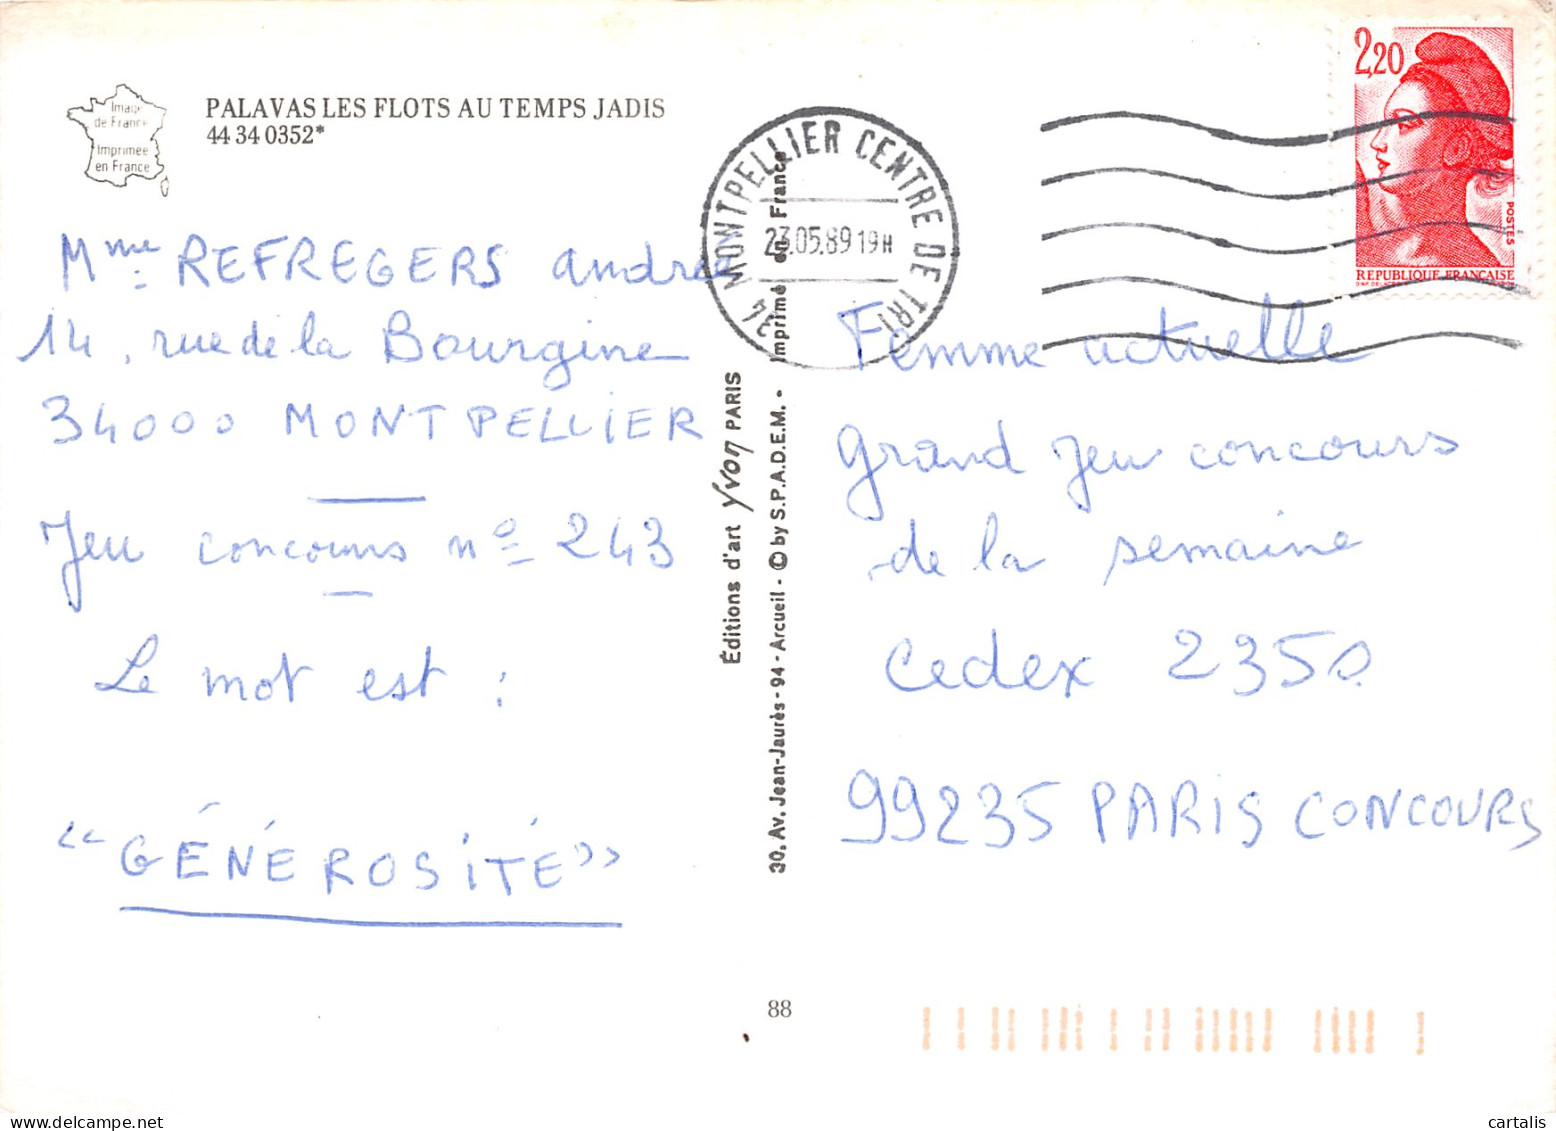 Image
de France
Imprimée
en France
PALAVAS LES FLOTS AU TEMPS JADIS
44 34 0352*
34 MONTPELLIER CENTRE DE TRI
23.05.89 19H
2,20
POSTES
REPUBLIQUE FRANÇAISE
Mme REFREGERS andrée
14, rue de la Bourgine
34000 MONTPELLIER
Jeu concours n° 243
Le mot est :
"GÉNÉROSITÉ"
Éditions d'art Yvon PARIS
30, Av. Jean-Jaurès - 94 - Arcueil - © by S.P.A.D.E.M. - Imprimé en France
Femme actuelle
grand Jeu concours
de la semaine
Cedex 2350
99235 PARIS CONCOURS
88
cartalis